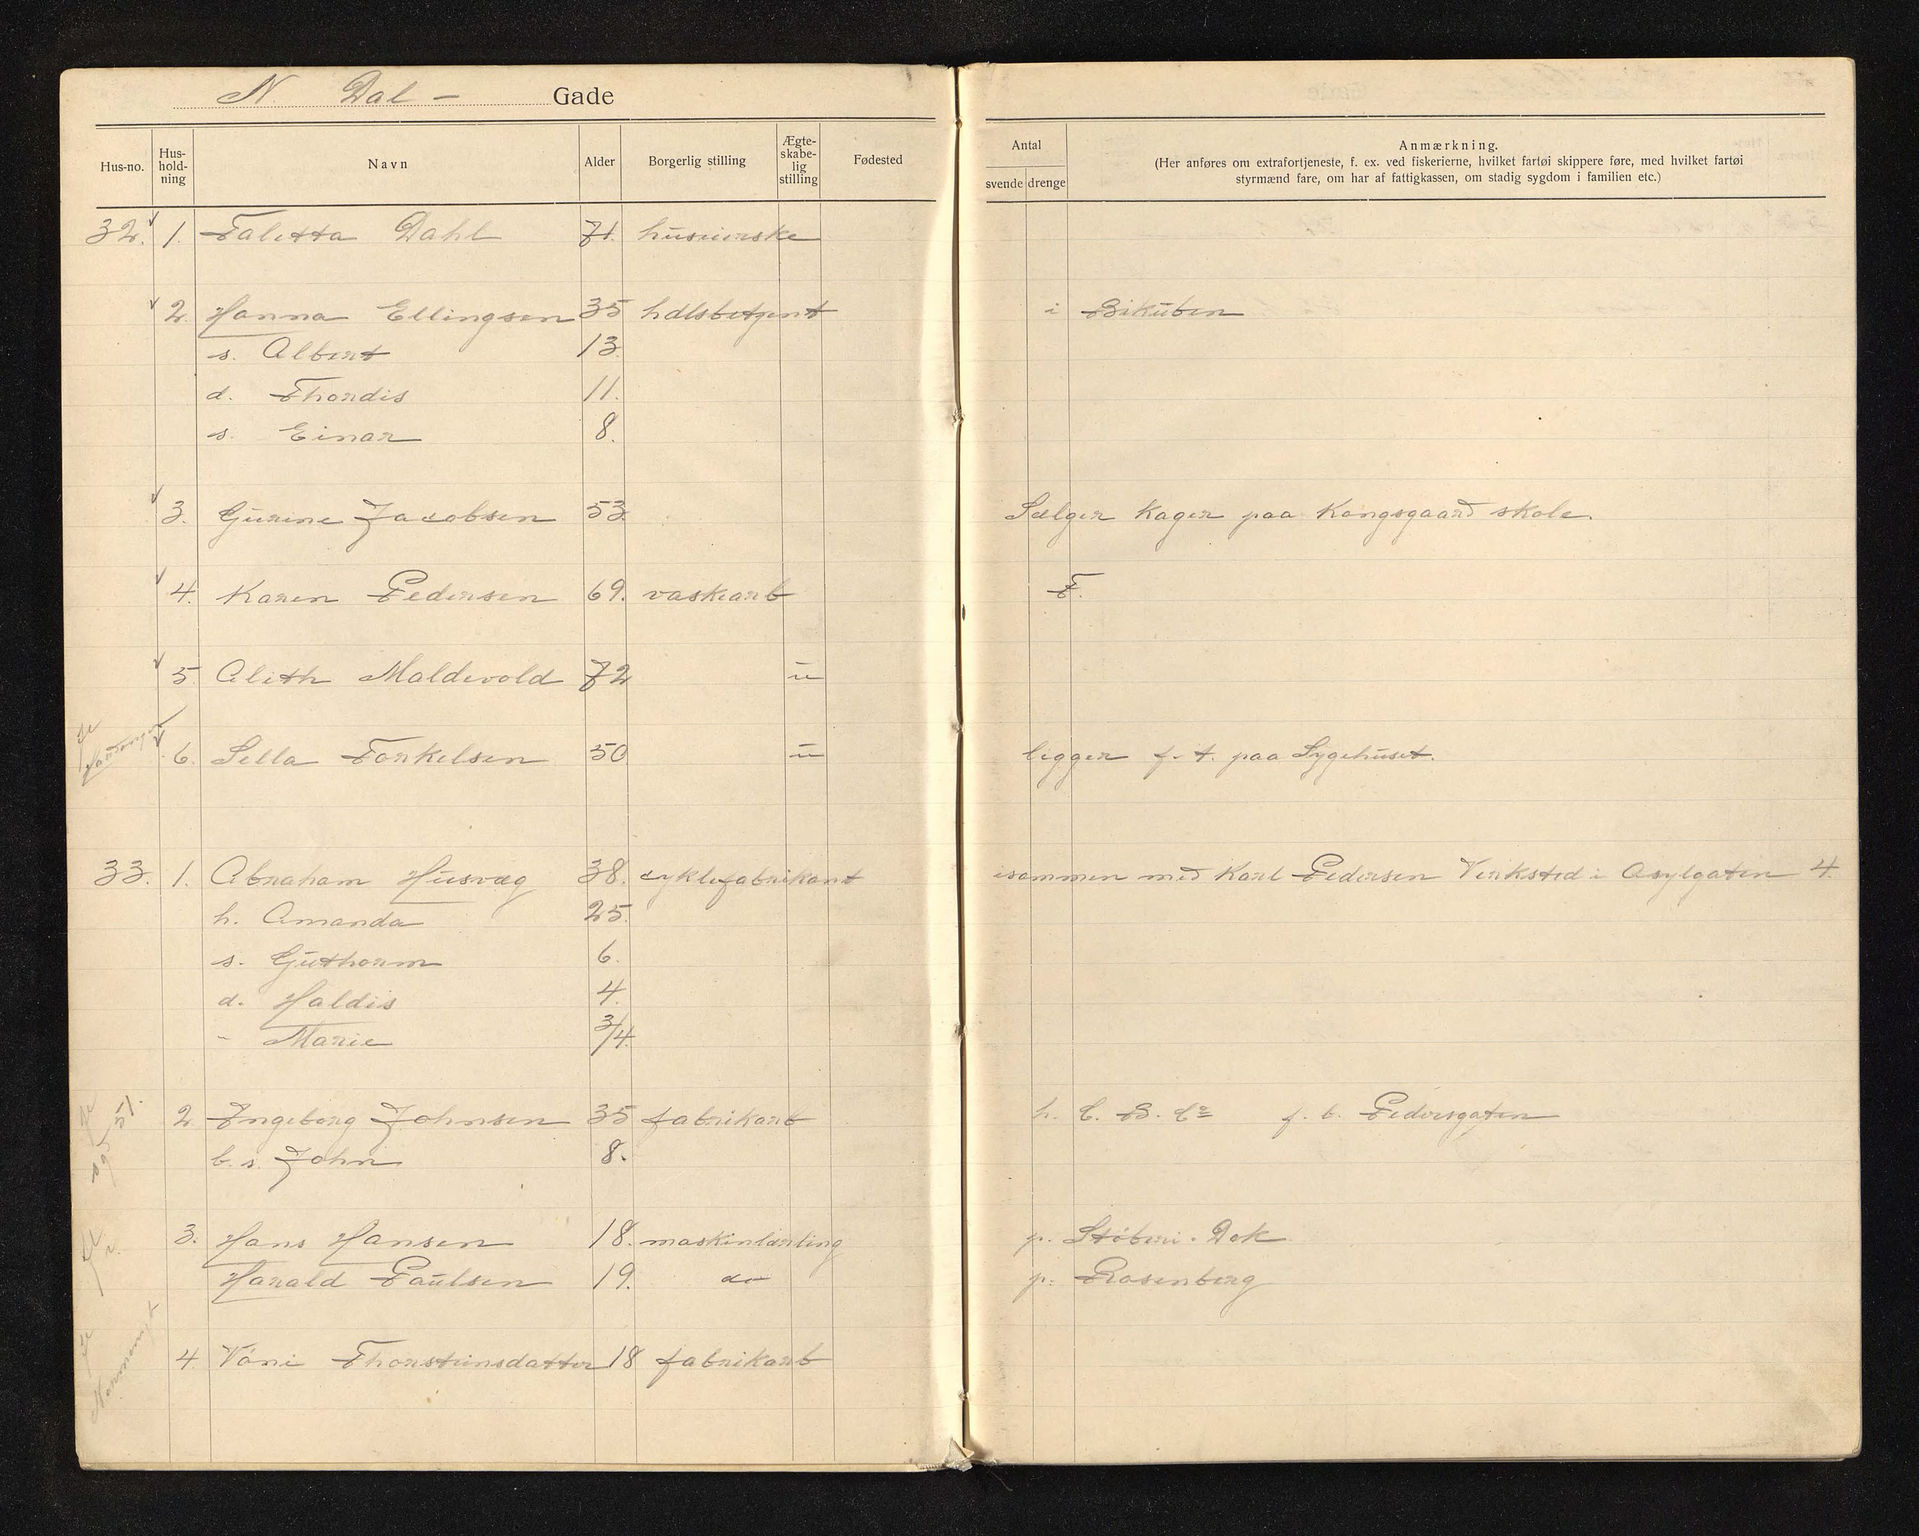 N. Dal - Gade
Hus-no. Hus-hold-ning Navn Alder Borgerlig stilling Ægte-skabe-lig stilling Fødested
32. 1. Taletta Dahl 71. husierske
2. Hanna Ellingsen 35 hdlsbetjent
s. Albert 13.
d. Thordis 11.
s. Einar 8.
3. Gurine Jacobsen 53
4. Karen Pedersen 69. vaskearb
5. Alith Maldevold 72 u
6. Sella Torkelsen 50 u
33. 1. Abraham Husvæg 38. cyklefabrikant
h. Amanda 25.
s. Guthorm 6.
d. Haldis 4.
- Marie 3/4.
2. Ingeborg Johnsen 35 fabrikarb
b. s. John 8.
3. Hans Hansen 18. maskinlærling
Harald Paulsen 19. do
4. Vöni Thorsteinsdatter 18 fabrikarb
Antal
svende drenge
Anmærkning.
(Her anføres om extrafortjeneste, f. ex. ved fiskerierne, hvilket fartøi skippere føre, med hvilket fartøi
styrmænd fare, om har af fattigkassen, om stadig sygdom i familien etc.)
i Bikuben
Sælger kager paa Kongsgaard skole.
F.
ligger f. t. paa Sygehuset.
isammen med Karl Pedersen Verksted i Asylgaten 4.
h. C. B. Co f. b. Pedersgaten
p. Støberi. Dok
p. Rosenberg